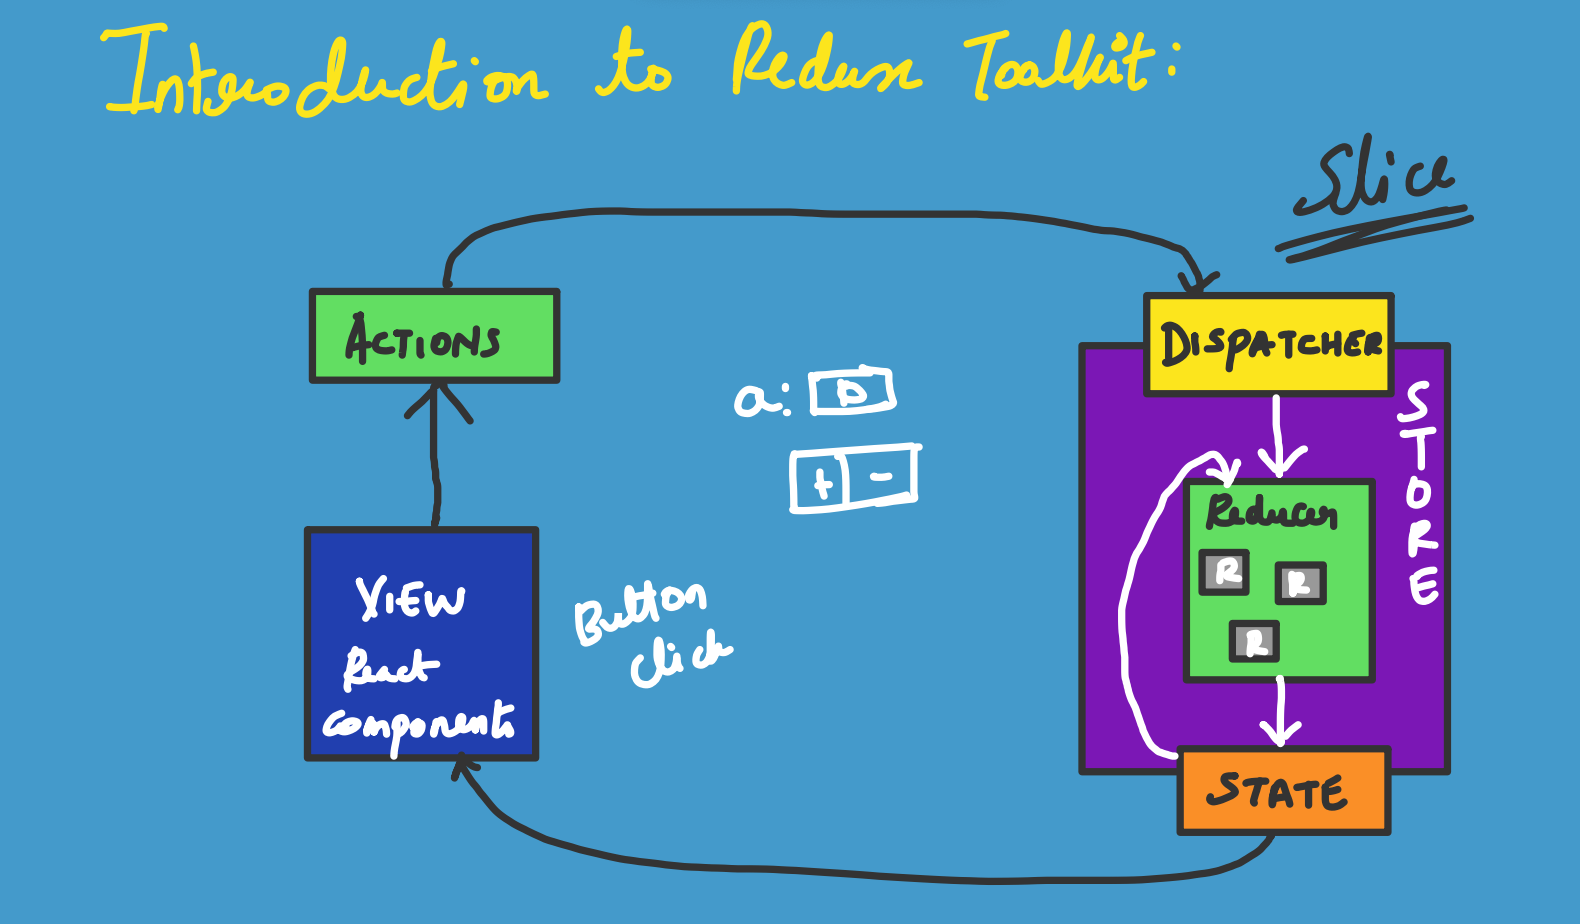 Introduction to Redux Toolkit:
Slice
ACTIONS
DISPATCHER
a: 0
+ -
STORE
Reducer
R R
R
VIEW
React
Components
Button
click
STATE